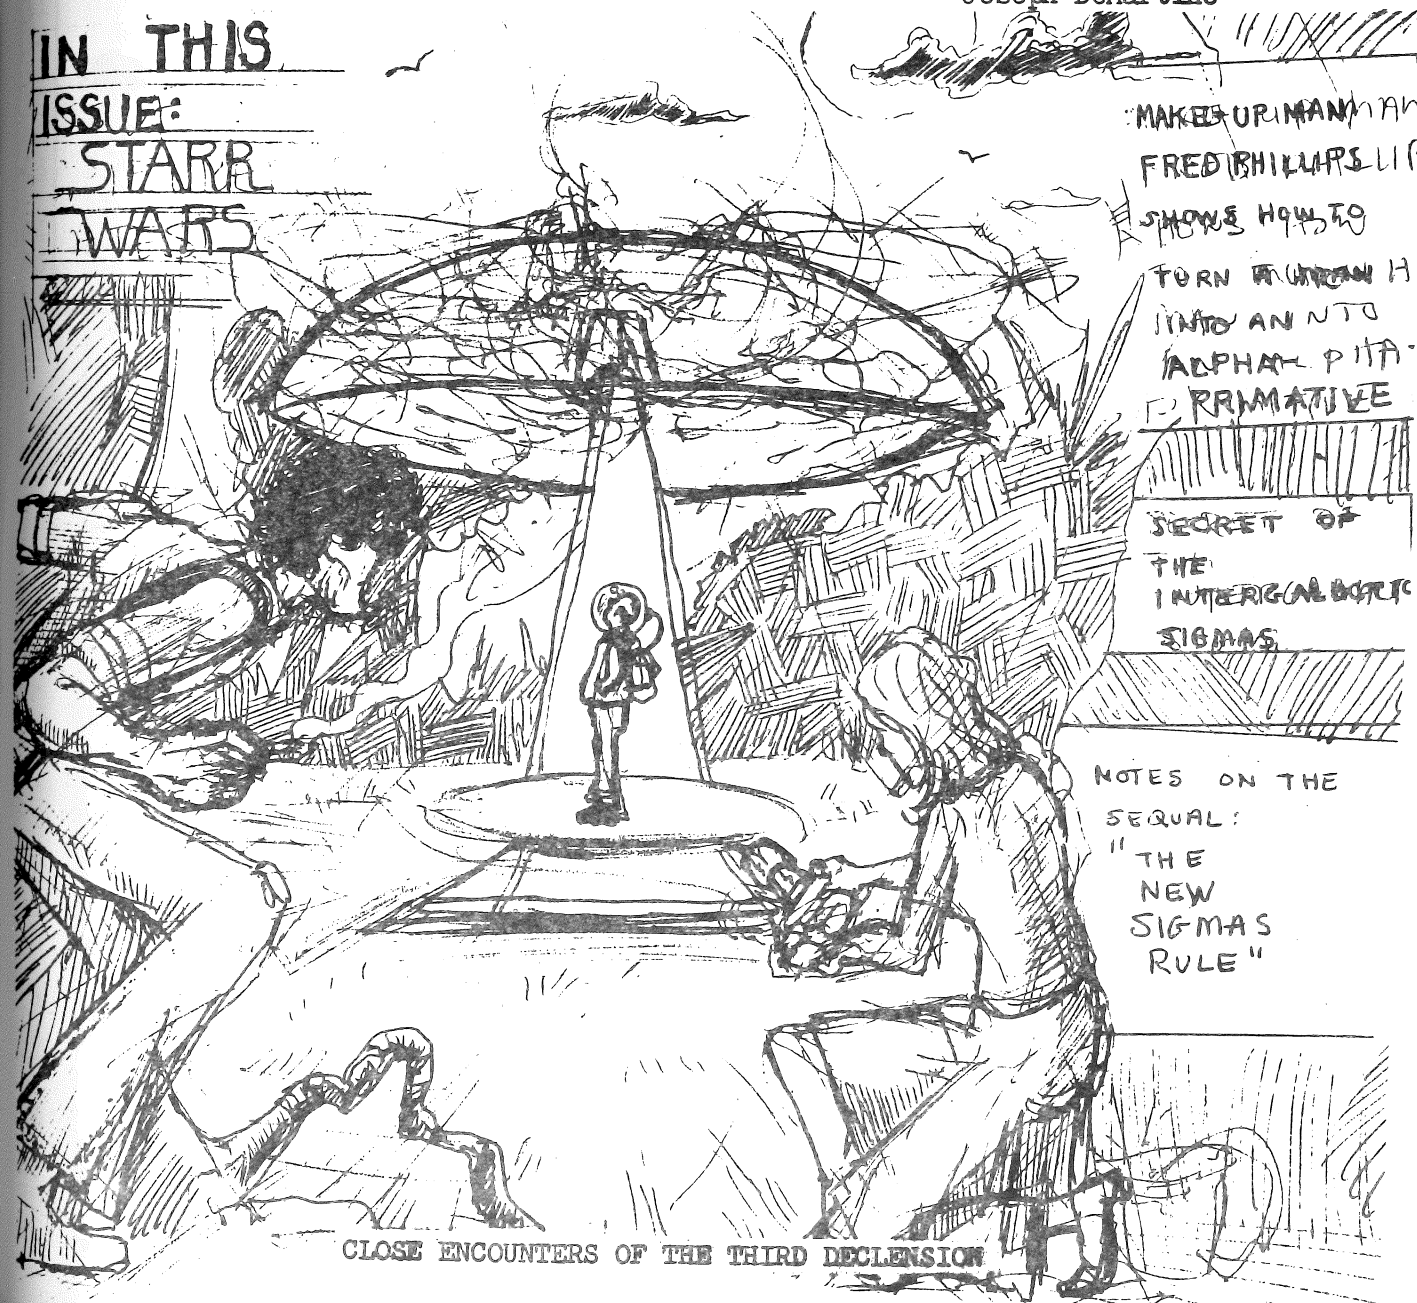 IN THIS
ISSUE:
STARR
WARS
MAKE-UP MAN
FRED PHILLIPS
SHOWS HOW TO
TURN
INTO AN
ALPHA
PRIMATIVE
SECRET OF
THE
INTERGALACTIC
SIGMAS
NOTES ON THE
SEQUAL:
"THE
NEW
SIGMAS
RULE"
CLOSE ENCOUNTERS OF THE THIRD DECLENSION